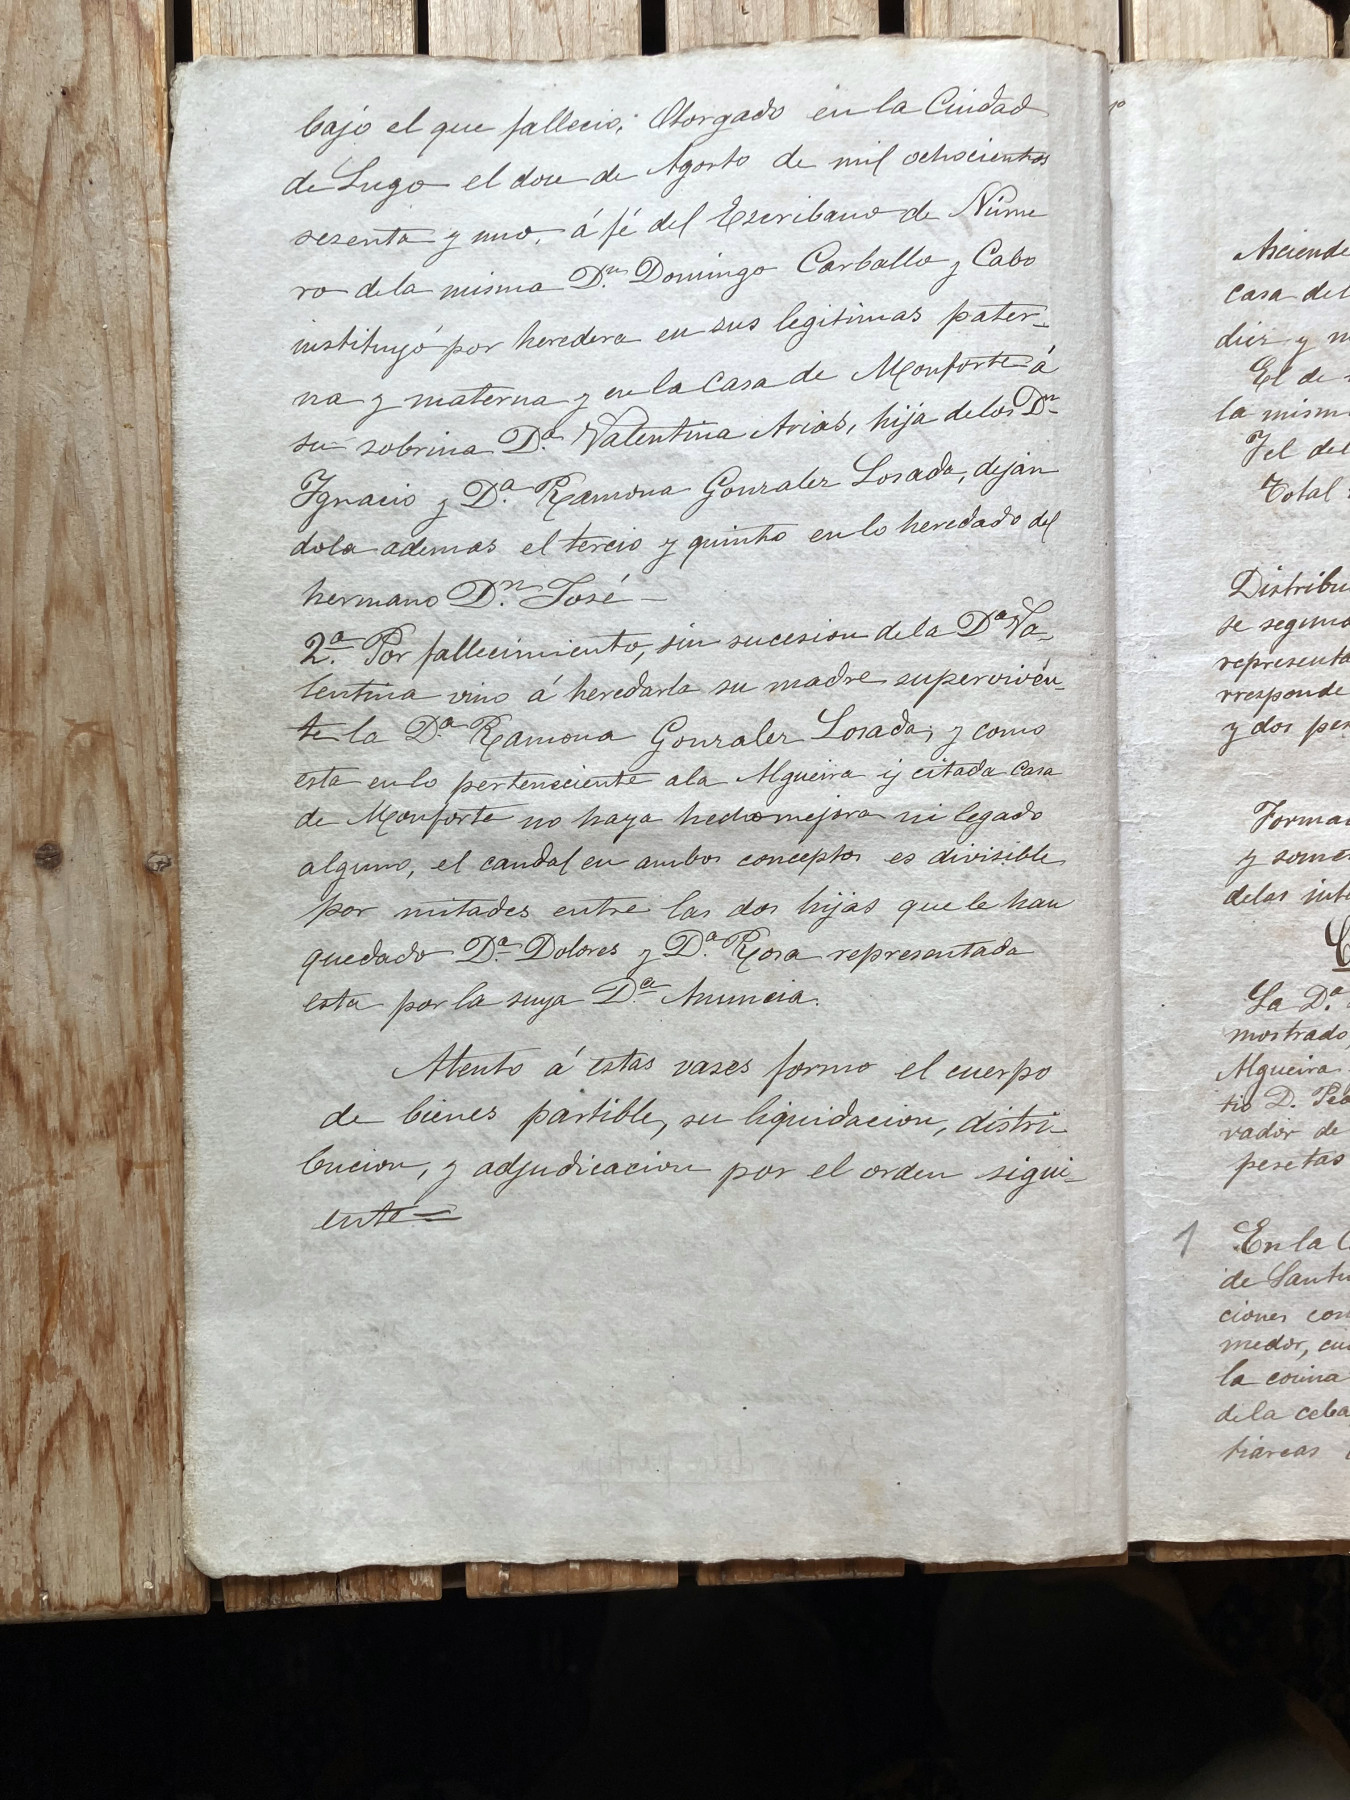 bajo el que fallecio; Otorgado en la Ciudad
de Lugo el doce de Agosto de mil ochocientos
sesenta y uno, á fé del Escribano de Núme
ro dela misma D.n Domingo Carballo y Cabo
instituyó por heredera en sus legitimas pater-
na y materna y en la Casa de Monforte á
su sobrina D.a Valentina Arias, hija de los D.n
Ygnacio y D.a Ramona Gonzalez Losada, deján
dola ademas el tercio y quinto en lo heredado del
hermano D.n José
2.a Por fallecimiento, sin sucesion de la D.a Va-
lentina vino á heredarla su madre superviven-
te la D.a Ramona Gonzalez Losada; y como
esta en lo perteneciente ala Algueira y citada Casa
de Monforte no haya hecho mejora ni legado
alguno, el caudal en ambos conceptos es divisible
por mitades entre las dos hijas que le han
quedado D.a Dolores y D.a Rosa representada
esta por la suya D.a Anuncia.
Atento á estas vases formo el cuerpo
de bienes partible, su liquidacion, distri-
bucion, y adjudicacion por el orden sigui-
ente=
Asciende
casa del
diez y
El de
la mism
Y el del
Total
Distribu
se segun
representa
rresponde
y dos pes
Forma
y some
delas inte
La D.a
mostrado,
Algueira
tio D. Ped
vador de
pesetas
1 En la C
de Santi
ciones con
medor, cu
la cocina
dela ceba
tiareas